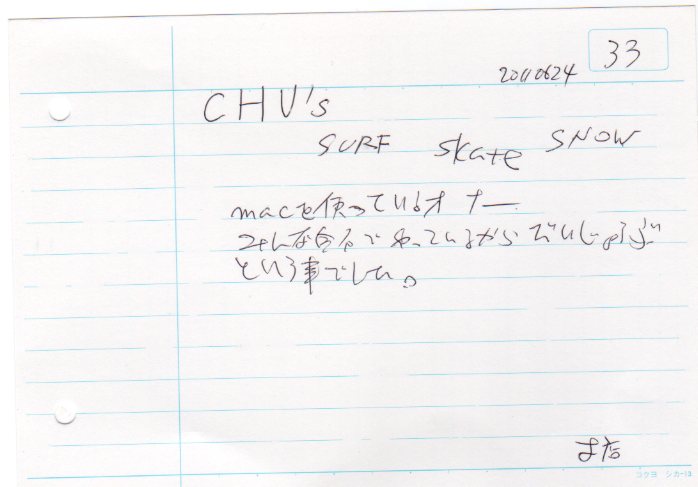 33
20110624
CHU's
SURF skate SNOW
macを使っているオーナー
みんな自分でやっているからだいじょうぶ
という事でした。
店
コクヨ シカ-13